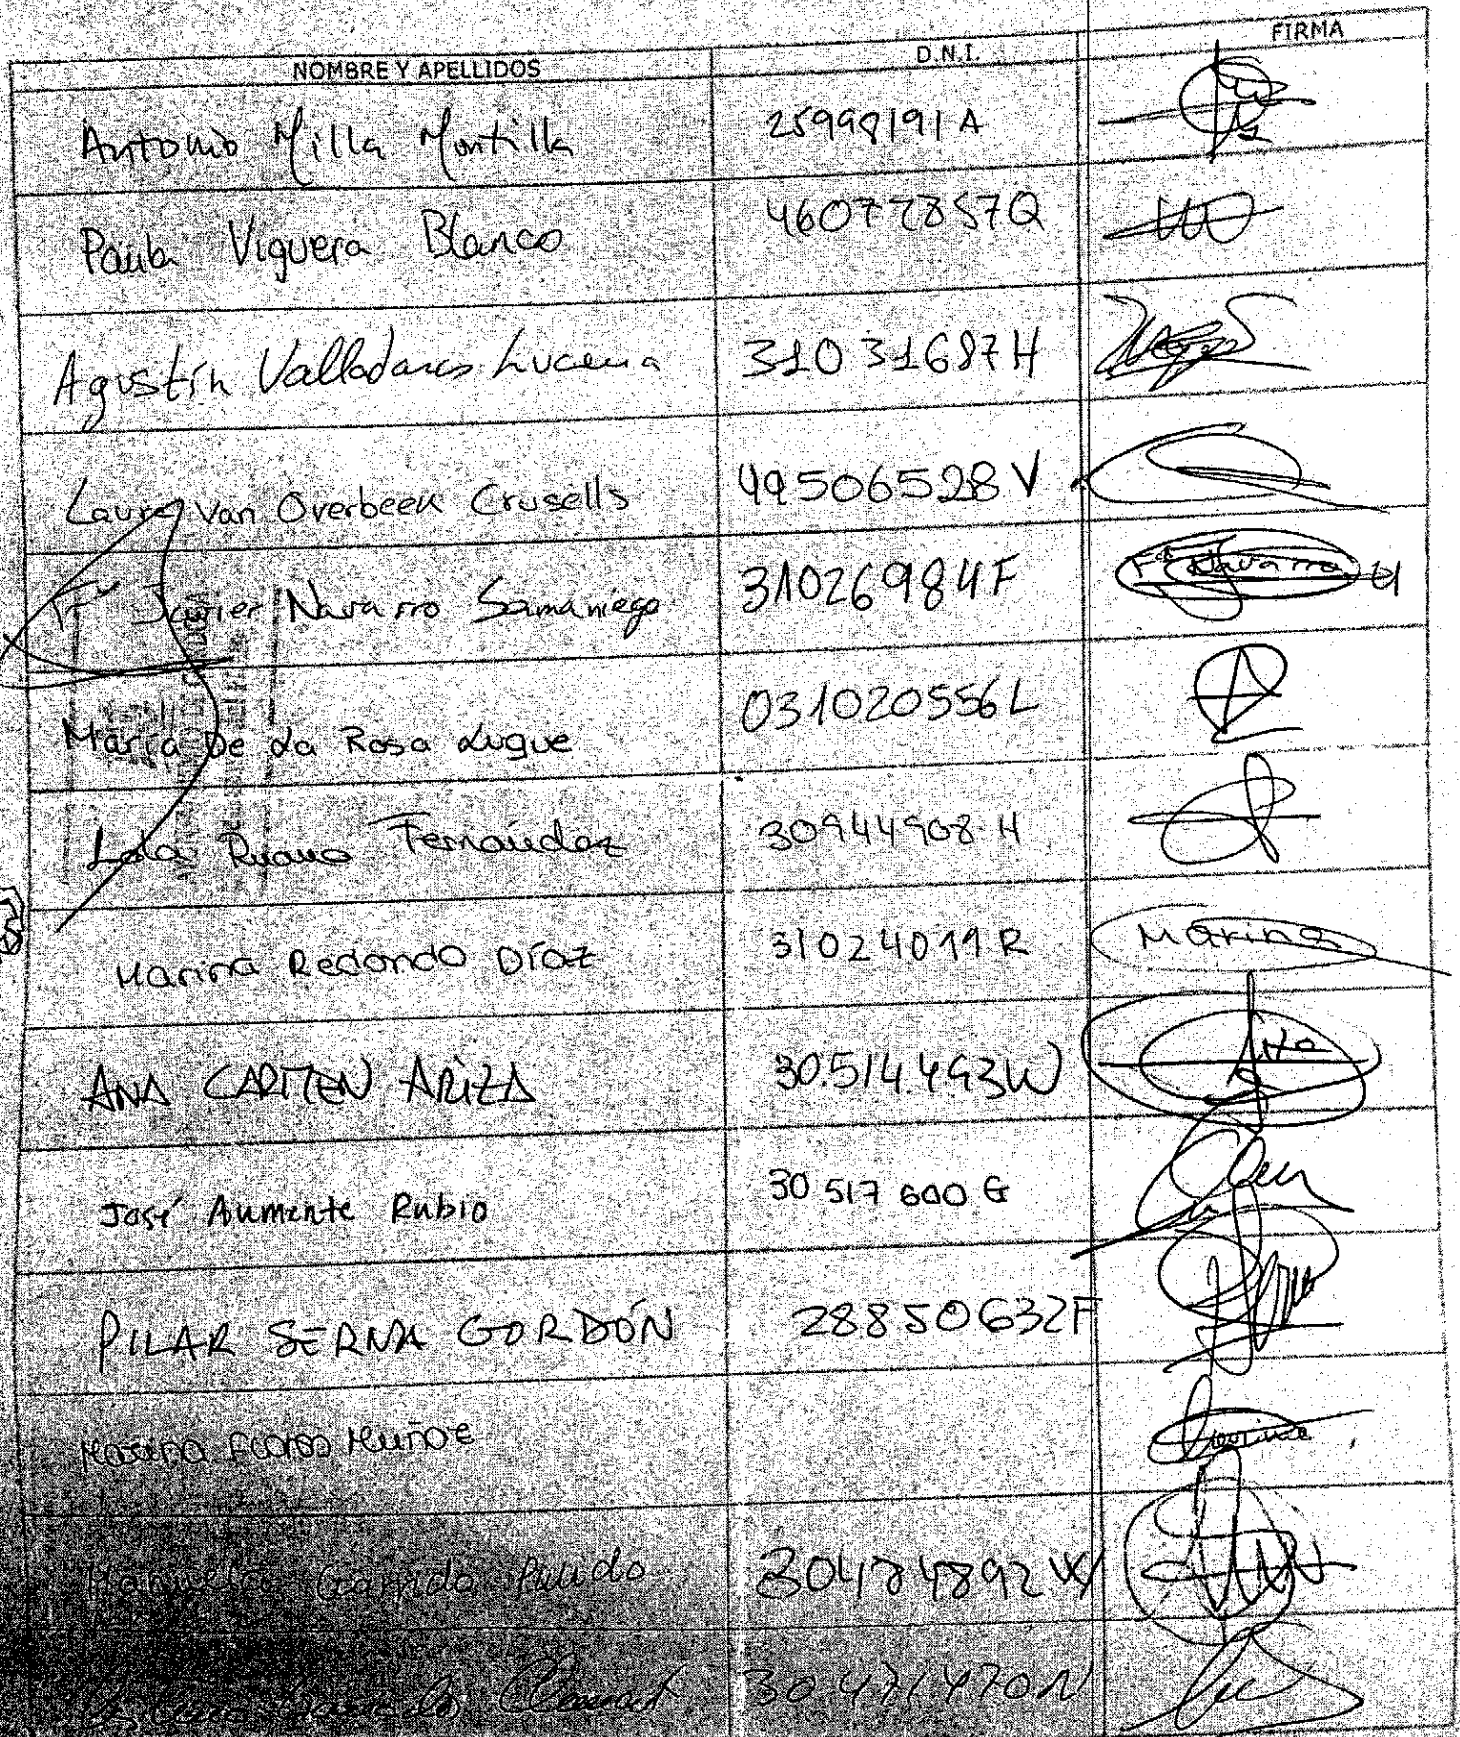 NOMBRE Y APELLIDOS D.N.I. FIRMA
Antonio Milla Montilla 25998191 A
Paula Viguera Blanco 46077857Q
Agustín Valladares Lucena 31031687H
Laura Van Overbeek Crusells 49506528V
Fº Javier Navarro Samaniego 31026984F Fº Navarro
María De La Rosa Luque 031020556L
Lola Ruano Fernández 30944908 H
Marina Redondo Díaz 31024019R Marina
ANA CARMEN ARIZA 30.514.493W
José Aumente Rubio 30 517 600 G
PILAR SERNA GORDÓN 28850632F
Marina Muñoz
Garrido Pulido 30474892W
30471470N